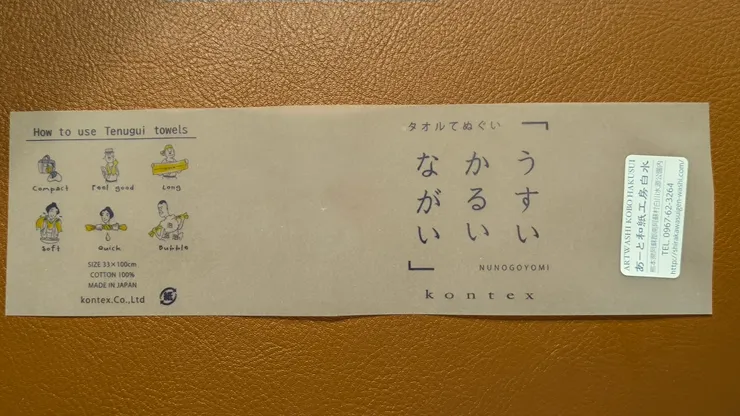 How to use Tenugui towels
Compact
Feel good
Long
Soft
Quick
Bubble
SIZE 33×100cm
COTTON 100%
MADE IN JAPAN
kontex.Co.,Ltd
紙
タオルてぬぐい
「うすい
かるい
ながい」
NUNOGOYOMI
kontex
ARTWASHI KOBO HAKUSUI
あーと和紙工房白水
熊本県阿蘇郡南阿蘇村白川水源公園内
TEL. 0967-62-3264
http://shirakawasuigen-washi.com/